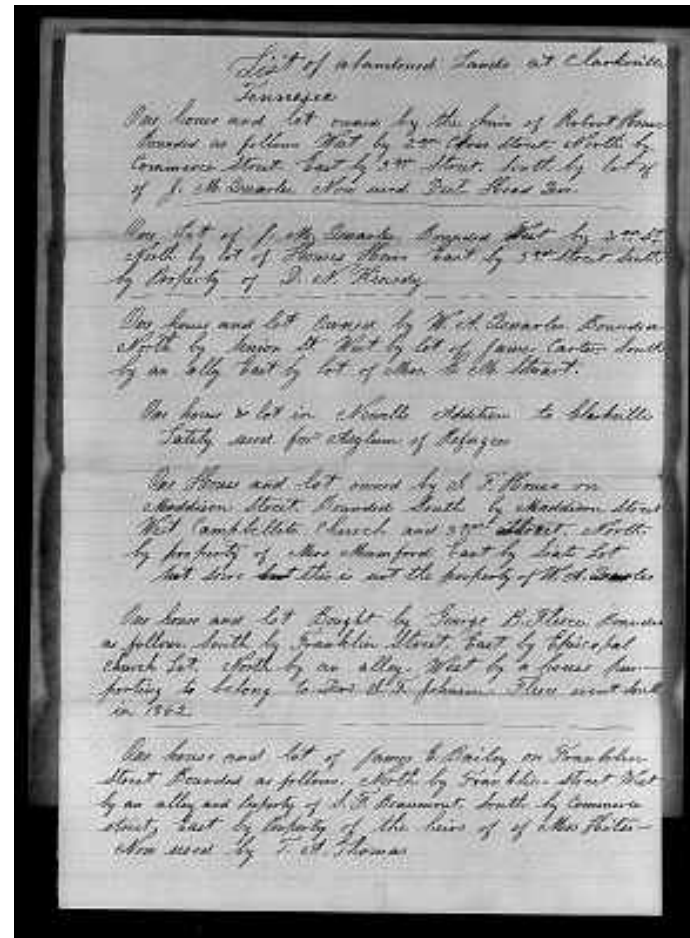 List of abandoned Lands at Clarksville
Tennessee
One house and lot owned by the heirs of Robert
bounded as follows West by 2nd Cross Street. North by
Commerce Street East by 3rd Street. South by lot of
of J. M. Quarles Now used
One Lot of J. M. Quarles Bounded West by 2nd St
North by lot of Heirs East by 3rd Street South
by Property of D. N. Kennedy
One house and lot owned by W. A. Quarles Bounded
North by St West by lot of James Carter South
by an ally East by lot of Mrs Stuart.
One house & lot in Addition to Clarksville
Lately used for Asylum of Refugees
One House and lot owned by J F House on
Maddison Street. Bounded South by Maddison Street
West Campbellite Church and 3rd Street. North
by property of Mrs Mumford East by Lot
not sure but this is not the property of W. A. Quarles
One house and lot Bought by George B. Fleece Bounded
as follows South by Franklin Street. East by Episcopal
Church Lot, North by an alley. West by a house pur-
porting to belong to Johnson Fleece went South
in 1862
One house and lot of James E Bailey on Franklin
Street Bounded as follows. North by Franklin Street West
by an alley and Property of S. F. Beaumont. South by Commerce
street, East by Property of the heirs of of Mrs
Now used by T. A. Thomas